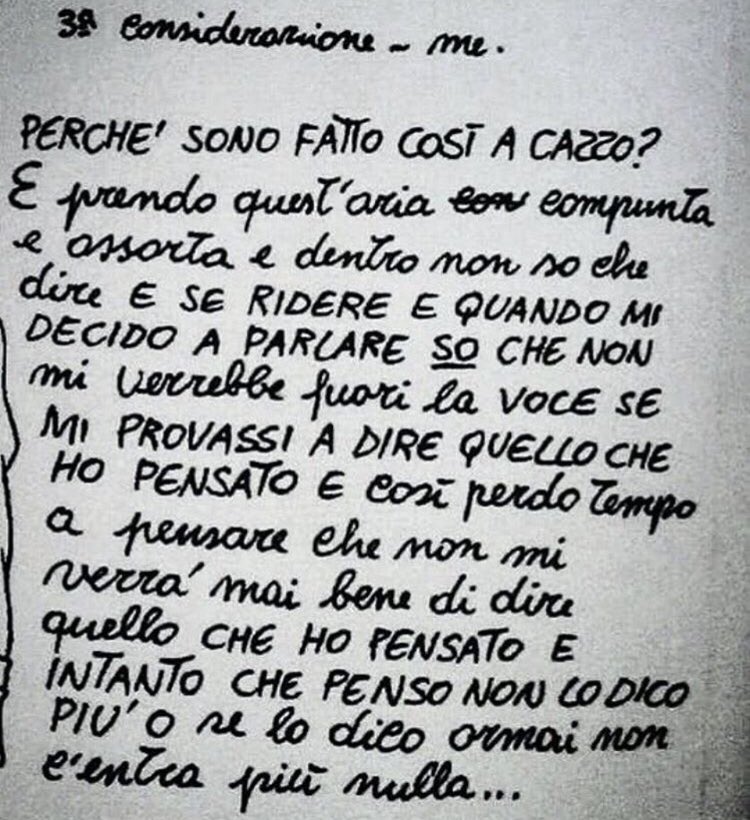 3ª considerazione - me.
PERCHE' SONO FATTO COSÌ A CAZZO?
E prendo quest'aria con compunta
e assorta e dentro non so che
dire E SE RIDERE E QUANDO MI
DECIDO A PARLARE SO CHE NON
mi verrebbe fuori la VOCE SE
MI PROVASSI A DIRE QUELLO CHE
HO PENSATO E così perdo tempo
a pensare che non mi
verra' mai bene di dire
quello CHE HO PENSATO E
INTANTO CHE PENSO NON LO DICO
PIU' O se lo dico ormai non
c'entra più nulla...